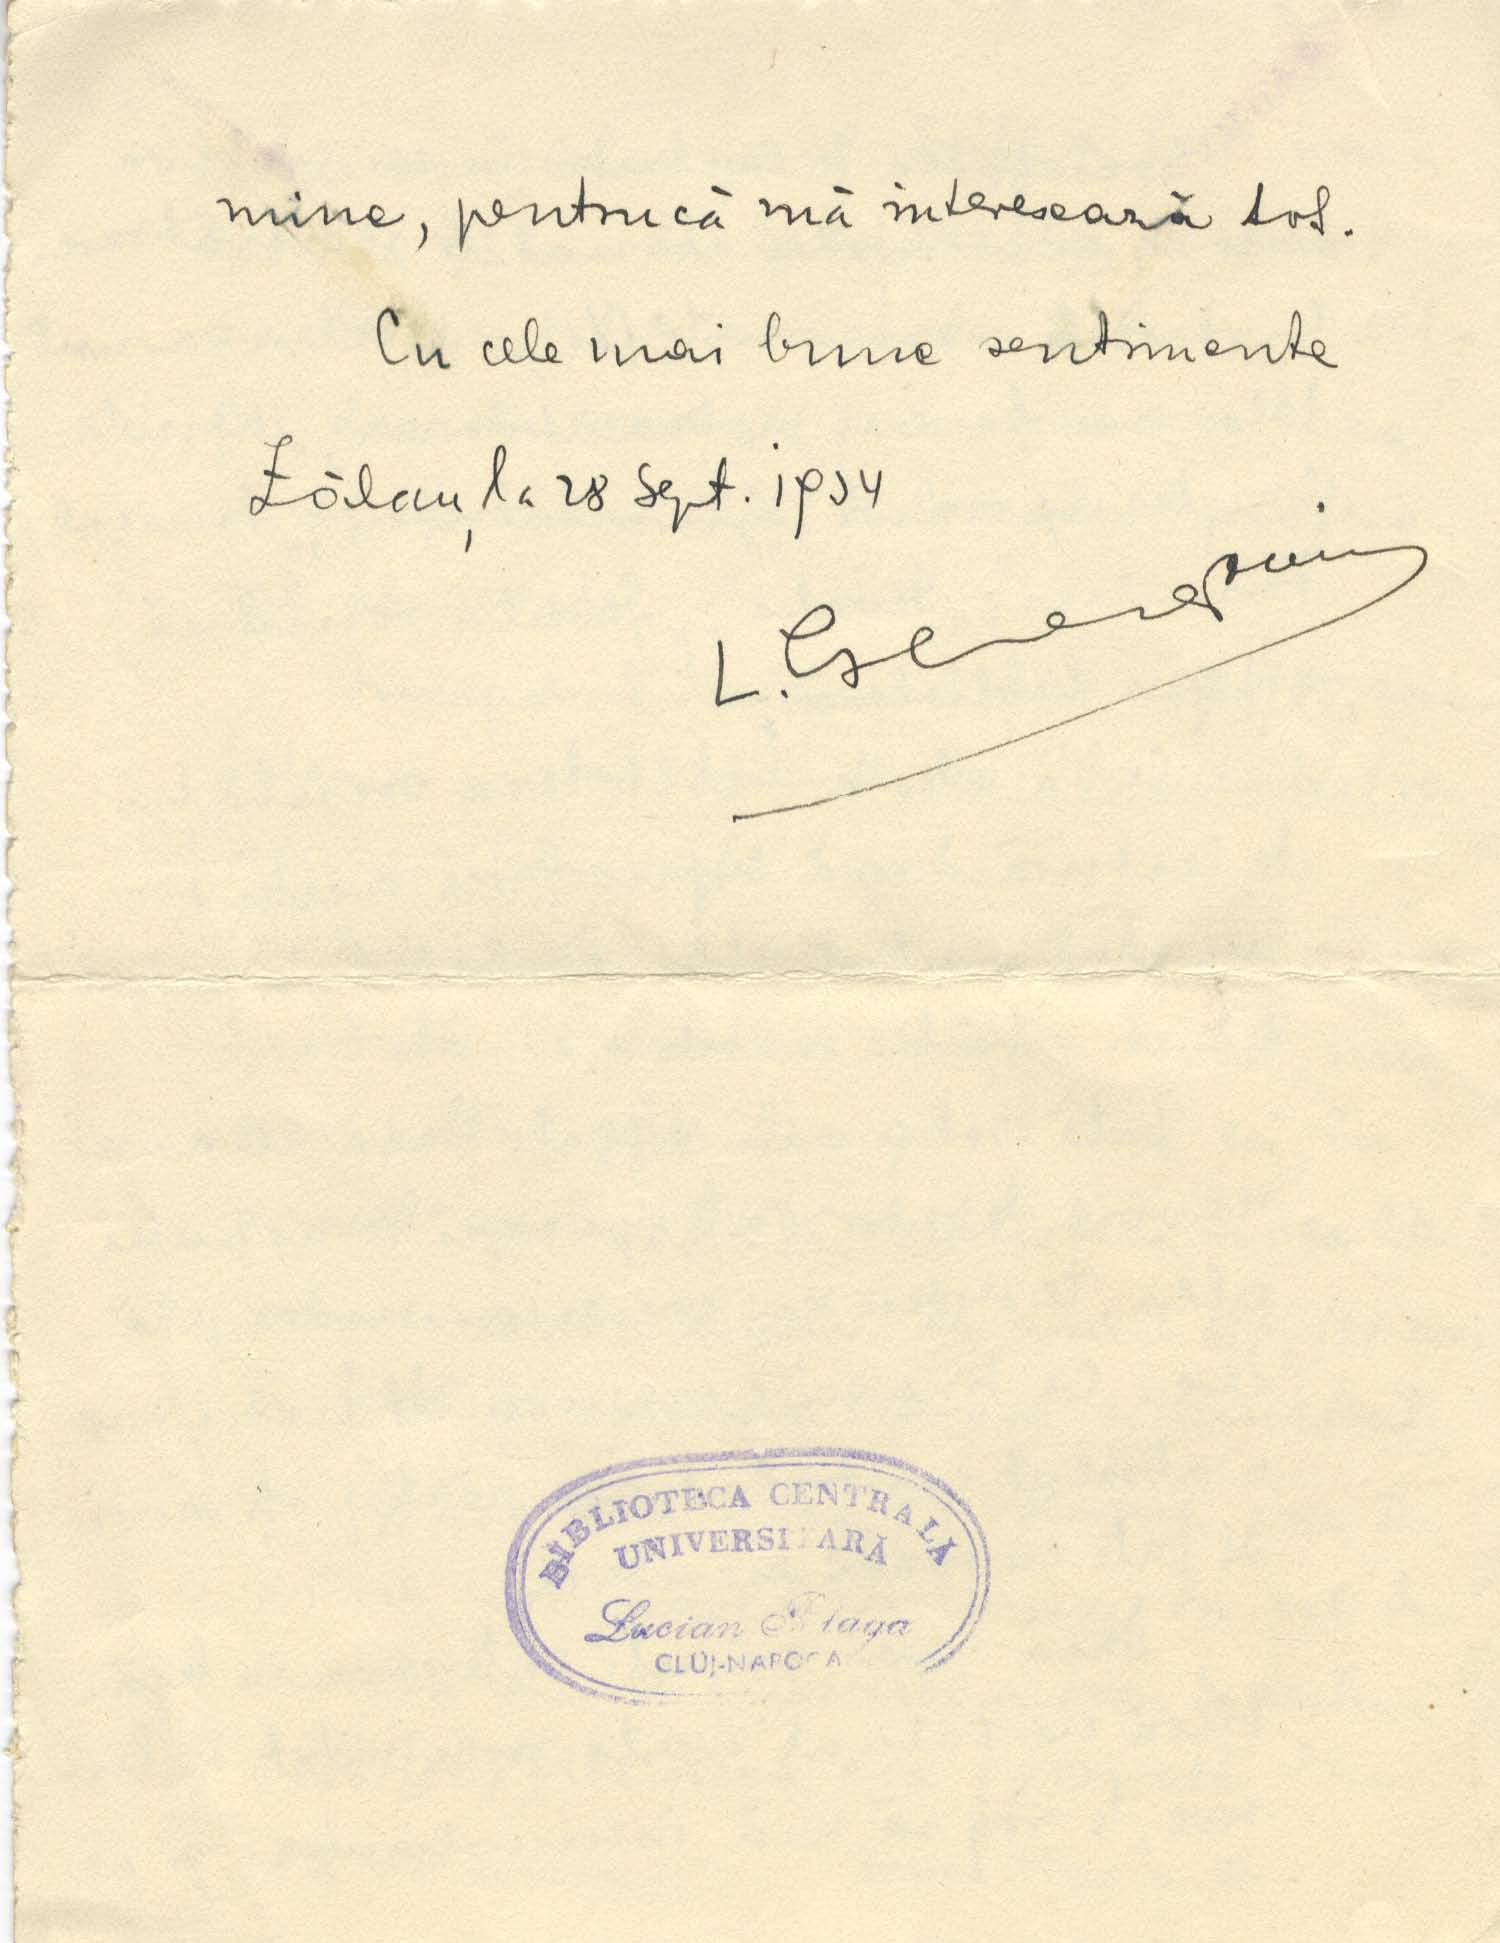 mine, pentrucă mă interesează tot.
Cu cele mai bune sentimente
Zălau, la 28 Sept. 1934
L. Ghergariu
BIBLIOTECA CENTRALĂ
UNIVERSITARĂ
Lucian Blaga
CLUJ-NAPOCA